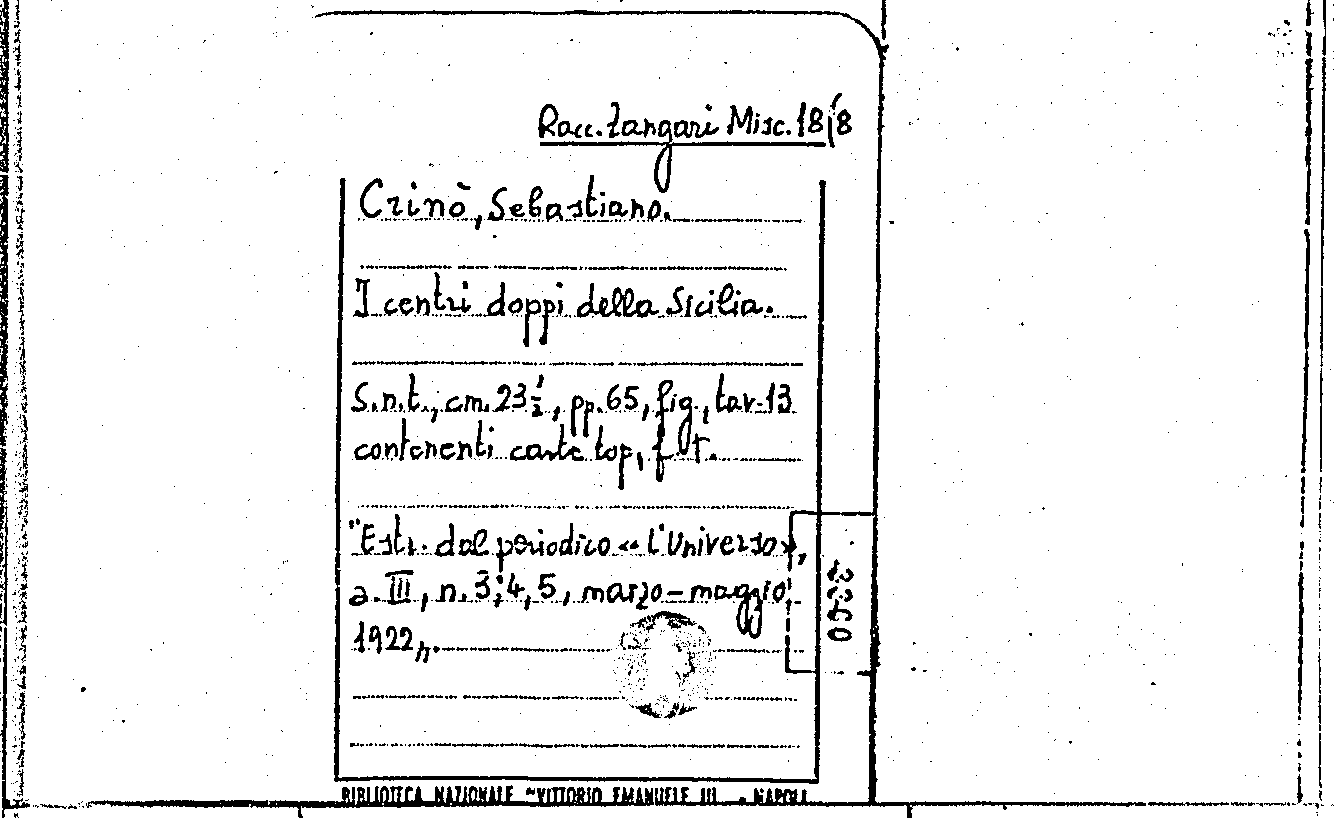 Racc. Zangari Misc. 18(8
Crinò, Sebastiano.
I centri doppi della Sicilia.
S.n.t., cm. 23½, pp. 65, fig., tav. 13
contenenti carte top, f.t.
"Estr. dal periodico «L'Universo»,
a. III, n. 3, 4, 5, marzo-maggio
1922".
BIBLIOTECA NAZIONALE "VITTORIO EMANUELE III - NAPOLI